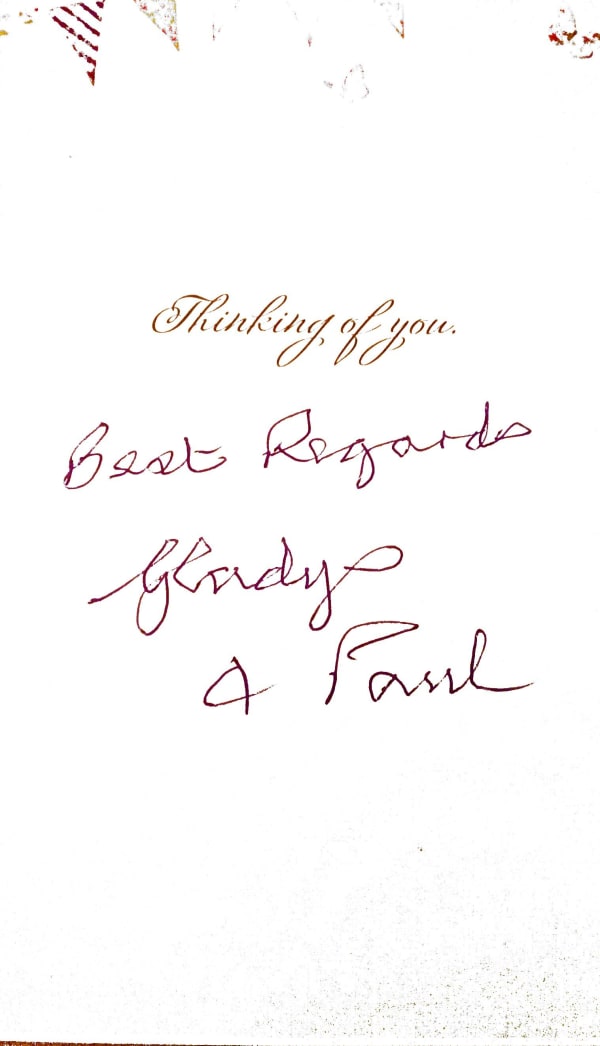 Thinking of you.
Best Regards
Gladys
& Paul